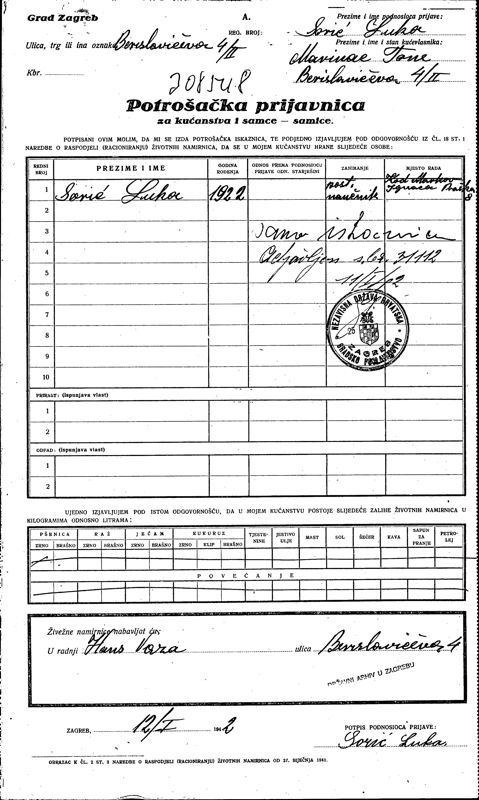 Grad Zagreb
A.
REG. BROJ:
Prezime i ime podnosioca prijave:
Sorić Luka
Ulica, trg ili ina oznaka Berislavićeva 4/II
Prezime i ime i stan kućevlasnika:
Marinac Tone
Kbr.
Berislavićeva 4/II
208548
Potrošačka prijavnica
za kućanstva i samce — samice.
POTPISANI OVIM MOLIM, DA MI SE IZDA POTROŠAČKA ISKAZNICA, TE PODJEDNO IZJAVLJUJEM POD ODGOVORNOŠĆU IZ ČL. 18 ST. 1
NAREDBE O RASPODJELI (RACIONIRANJU) ŽIVOTNIH NAMIRNICA, DA SE U MOJEM KUĆANSTVU HRANE SLIJEDEĆE OSOBE:
REDNI BROJ
PREZIME I IME
GODINA ROĐENJA
ODNOS PREMA PODNOSIOCU PRIJAVE ODN. STARJEŠINI
ZANIMANJE
MJESTO RADA
1
Sorić Luka
1922
naučnik
2
3
4
Odjavljen s br. 31112
5
11/I/42
6
7
NEZAVISNA DRŽAVA HRVATSKA
25
ZAGREB
GRADSKO POGLAVARSTVO
8
9
10
PRIRAST: (Ispunjava vlast)
1
2
ODPAD: (Ispunjava vlast)
1
2
UJEDNO IZJAVLJUJEM POD ISTOM ODGOVORNOŠĆU, DA U MOJEM KUĆANSTVU POSTOJE SLIJEDEĆE ZALIHE ŽIVOTNIH NAMIRNICA U
KILOGRAMIMA ODNOSNO LITRAMA:
PŠENICA
RAŽ
JEČAM
KUKURUZ
TJESTENINE
JESTIVO ULJE
MAST
SOL
ŠEĆER
KAVA
SAPUN ZA PRANJE
PETROLEJ
ZRNO BRAŠNO ZRNO BRAŠNO ZRNO BRAŠNO ZRNO KLIP BRAŠNO
POVEĆANJE
Živežne namirnice nabavljat ću:
U radnji Hans Vaza ulica Berislavićeva 4
DRŽAVNI ARHIV U ZAGREBU
ZAGREB, 12/I 1942
POTPIS PODNOSIOCA PRIJAVE:
Sorić Luka
OBRAZAC K ČL. 2 ST. 3 NAREDBE O RASPODJELI (RACIONIRANJU) ŽIVOTNIH NAMIRNICA OD 27. SIJEČNJA 1941.